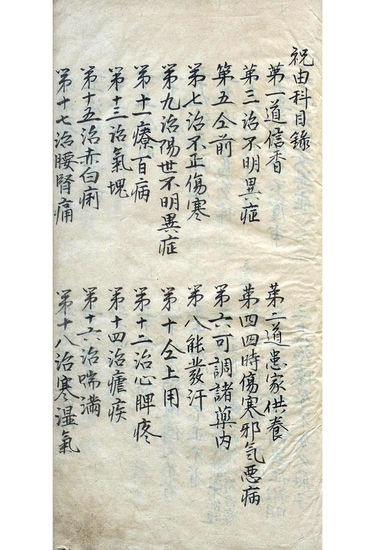 祝由科目錄
第一道信香 第二道患家供養
第三治不明異症 第四四時傷寒邪气惡病
第五仝前 第六可調諸藥内
第七治不正傷寒 第八能發汗
第九治陽世不明異症 第十仝上用
第十一療百病 第十二治心脾疼
第十三治氣塊 第十四治瘧疾
第十五治赤白痢 第十六治喘滿
第十七治腰腎痛 第十八治寒湿氣